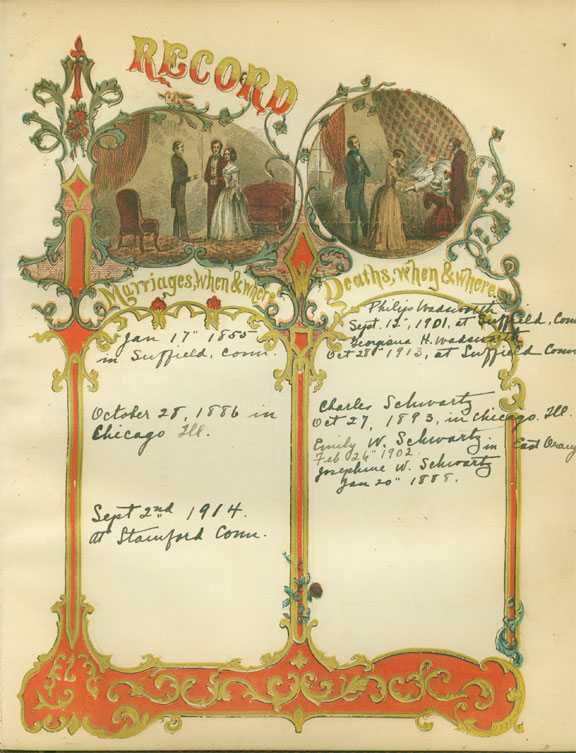 RECORD
Marriages, when & where
Jan 17" 1855
in Suffield, Conn.
October 28, 1886 in
Chicago Ill.
Sept 2nd 1914.
at Stamford Conn.
Deaths, when & where
Philip Wadsworth
Sept. 12", 1901, at Suffield, Conn
Georgiana H. Wadsworth
Oct 28" 1913, at Suffield Conn
Charles Schwartz
Oct 27, 1893, in Chicago. Ill.
Emily W. Schwartz in East Orang
Feb 26" 1902.
Josephine W. Schwartz
Jan 20" 1888.